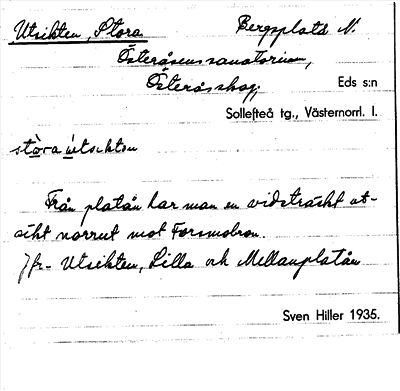 Utsikten, Stora Bergplatå N.
Österåsens sanatorium,
Österåskog, Eds s:n
Sollefteå tg., Västernorrl. l.
stòra útsikten
Från platån har man en vidsträckt ut-
sikt norrut mot Forsmobron.
Jfr. Utsikten, Lilla och Mellanplatån
Sven Hiller 1935.